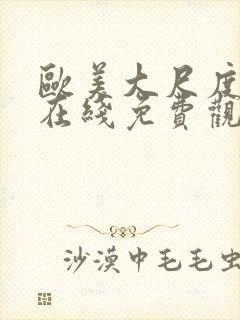 歐美大尺度
在綫免費觀
沙漠中毛毛虫